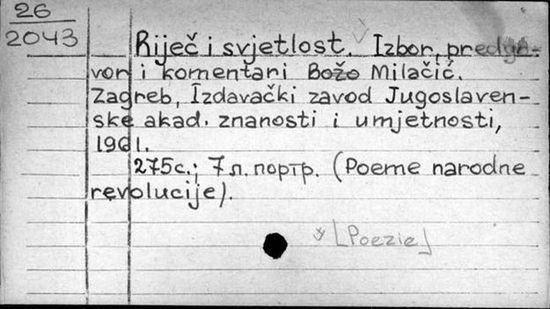 26
2043
Riječ i svjetlost. Izbor, predgo-
vor i komentari Božo Milačić.
Zagreb, Izdavački zavod Jugoslaven-
ske akad. znanosti i umjetnosti,
1961.
275c.; 7 л. портр. (Poeme narodne
revolucije).
[Poezie]